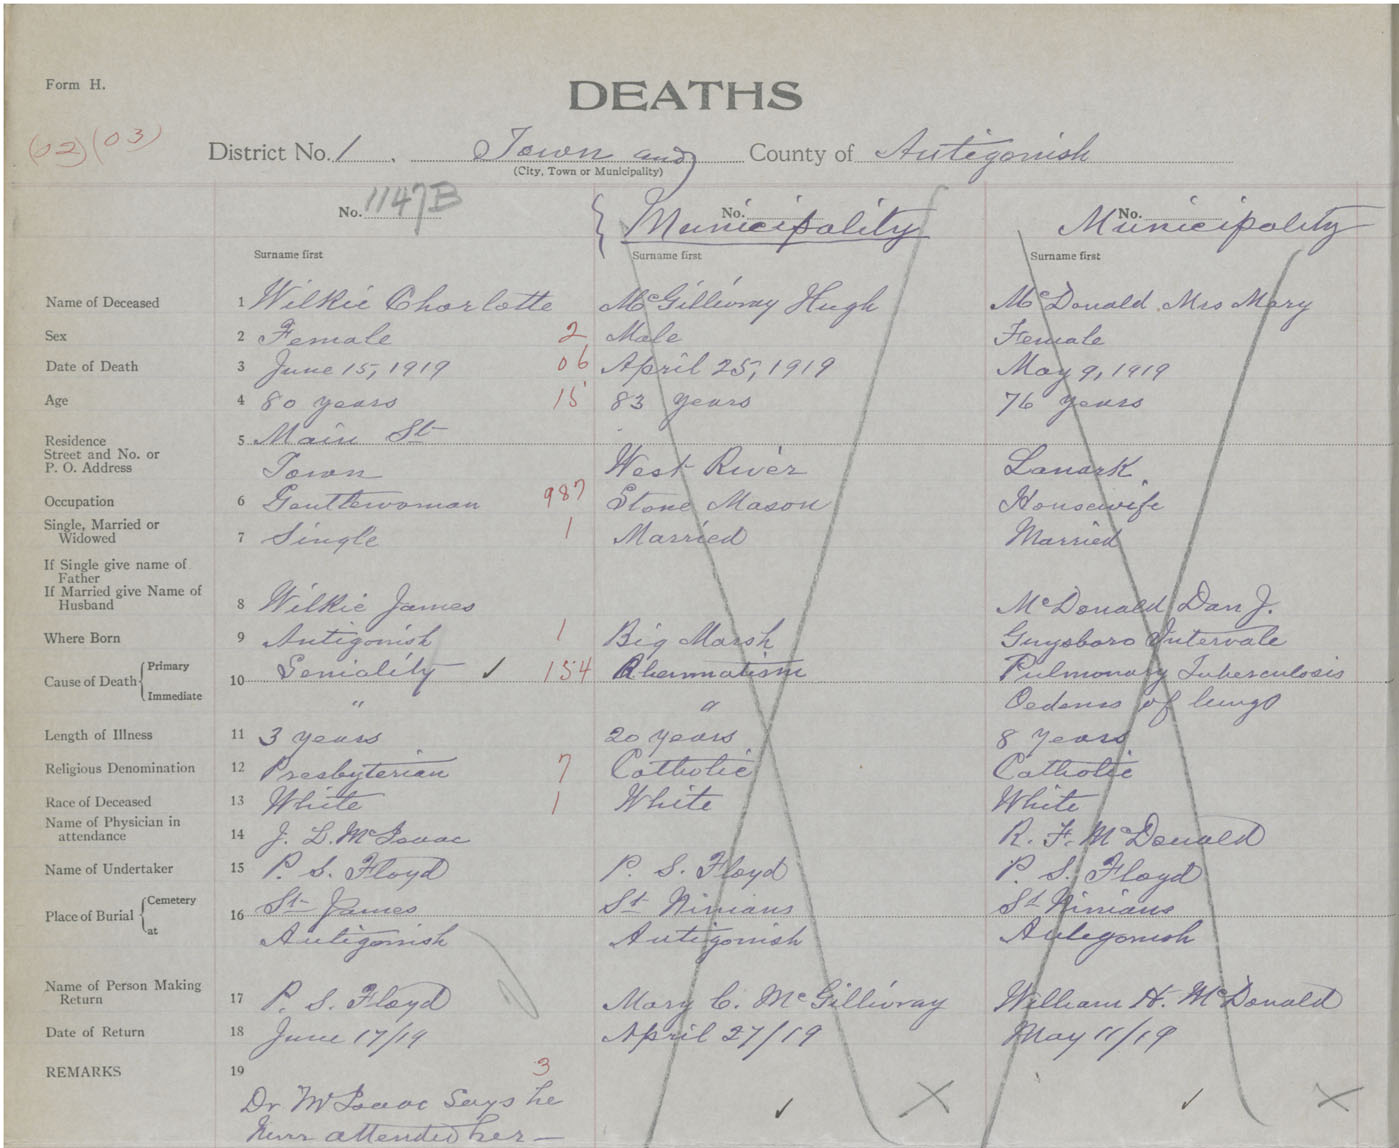 Form H.
DEATHS
(02)(03)
District No. 1. Town and County of Antigonish
(City, Town or Municipality)
No. 1147B No. Municipality No. Municipality
Surname first Surname first Surname first
Name of Deceased 1 Wilkie Charlotte McGillivray Hugh McDonald Mrs Mary
Sex 2 Female 2 Male Female
Date of Death 3 June 15, 1919 06 April 25, 1919 May 9, 1919
Age 4 80 years 15 83 years 76 years
Residence 5 Main St
Street and No. or
P. O. Address Town West River Lanark
Occupation 6 Gentlewoman 987 Stone Mason Housewife
Single, Married or
Widowed 7 Single 1 Married Married
If Single give name of
Father
If Married give Name of
Husband 8 Wilkie James McDonald Dan J.
Where Born 9 Antigonish 1 Big Marsh Guysboro Intervale
Cause of Death Primary 10 Seniality ✓ 154 Rheumatism Pulmonary Tuberculosis
Immediate " " Oedema of lungs
Length of Illness 11 3 years 20 years 8 years
Religious Denomination 12 Presbyterian 7 Catholic Catholic
Race of Deceased 13 White 1 White White
Name of Physician in
attendance 14 J. L. McIsaac R. F. McDonald
Name of Undertaker 15 P. S. Floyd P. S. Floyd P. S. Floyd
Place of Burial Cemetery 16 St James St Ninians St Ninians
at Antigonish Antigonish Antigonish
Name of Person Making
Return 17 P. S. Floyd Mary C. McGillivray William H. McDonald
Date of Return 18 June 17/19 April 27/19 May 11/19
REMARKS 19 3
Dr McIsaac Says he
Never attended her —